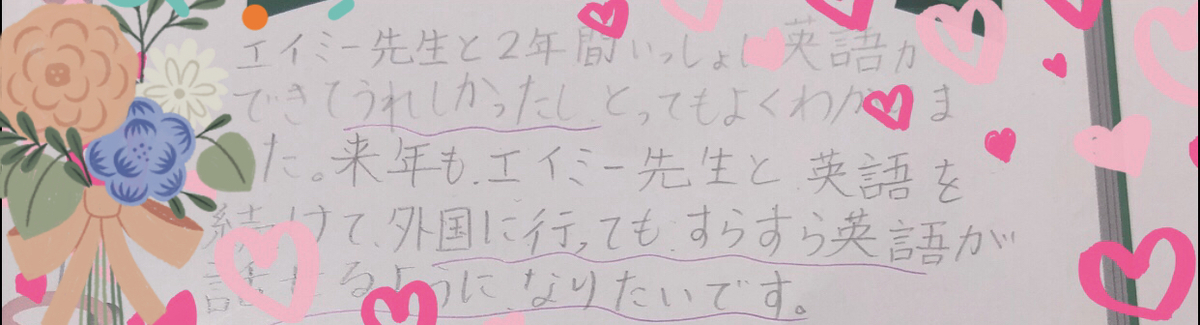 エイミー先生と2年間いっしょに英語が
できてうれしかったし、とってもよくわかりま
た。来年も、エイミー先生と、英語を
続けて、外国に行っても、すらすら英語が
話せるようになりたいです。